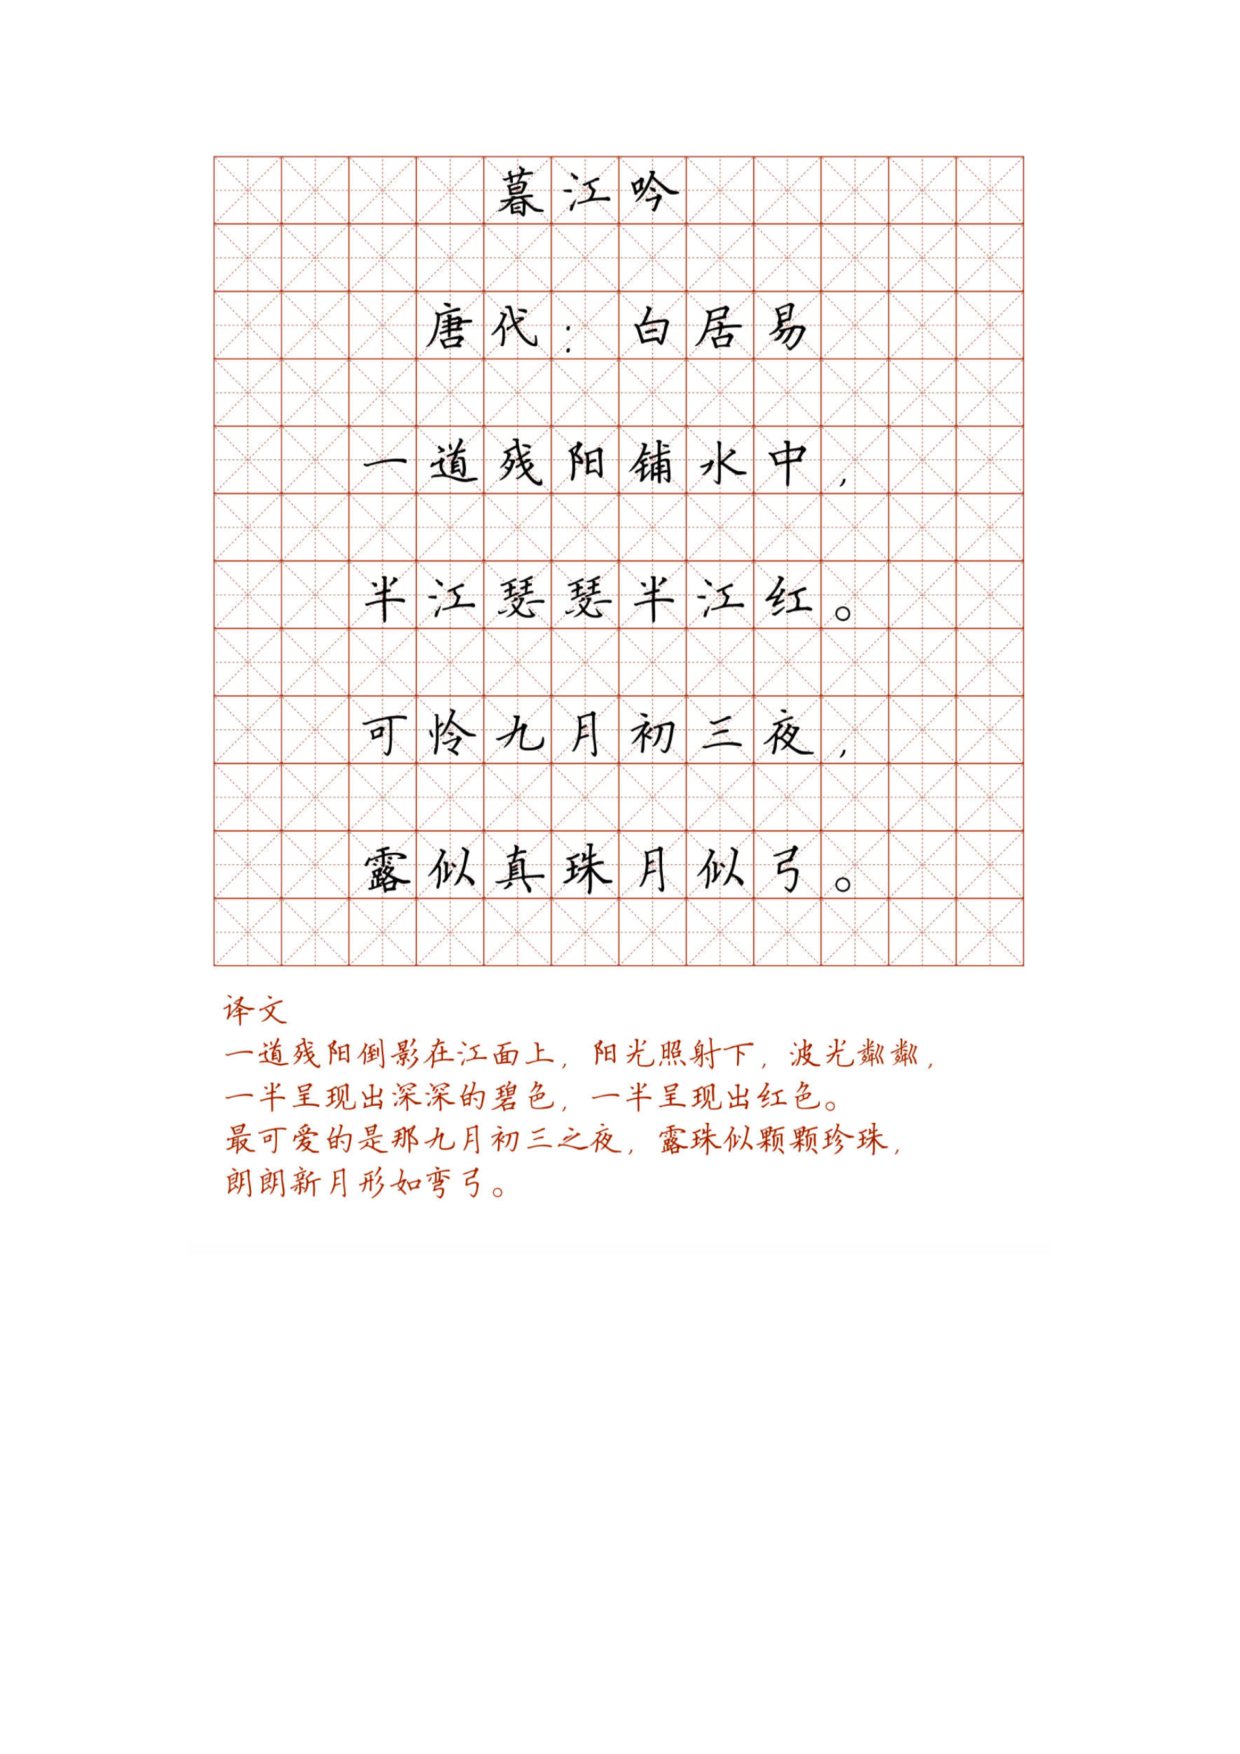 暮江吟
唐代：白居易
一道残阳铺水中，
半江瑟瑟半江红。
可怜九月初三夜，
露似真珠月似弓。
译文
一道残阳倒影在江面上，阳光照射下，波光粼粼，
一半呈现出深深的碧色，一半呈现出红色。
最可爱的是那九月初三之夜，露珠似颗颗珍珠，
朗朗新月形如弯弓。